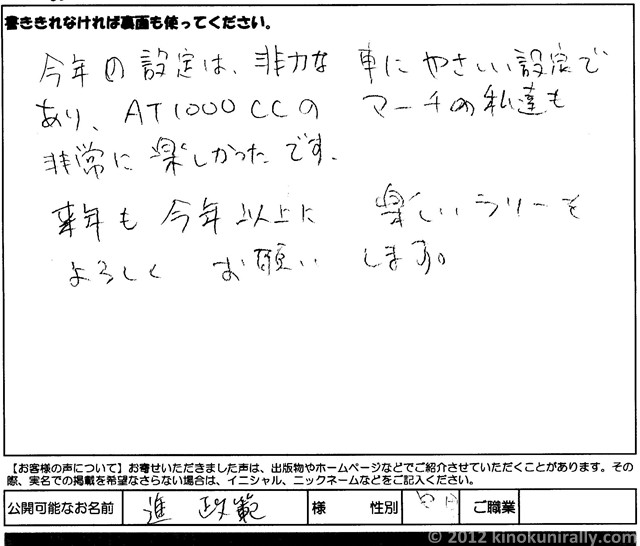 書ききれなければ裏面も使ってください。
今年の設定は、非力な車にやさしい設定で
あり、AT1000CCのマーチの私達も
非常に楽しかったです。
来年も今年以上に 楽しいラリーを
よろしく お願い します。
【お客様の声について】お寄せいただきました声は、出版物やホームページなどでご紹介させていただくことがあります。その
際、実名での掲載を希望なさらない場合は、イニシャル、ニックネームなどをご記入ください。
公開可能なお名前 進 政範 様 性別 男 ご職業
© 2012 kinokunirally.com